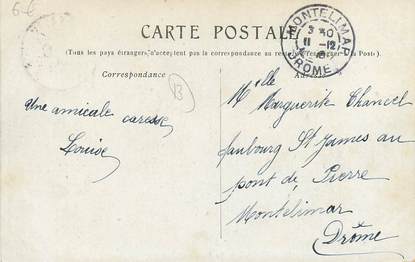 6-6
CARTE POSTALE
(Tous les pays étrangers n'acceptent pas la correspondance au recto
Correspondance
MONTELIMAR
3 30
11 -12
DROME
B
Une amicale caresse
Louise
Mlle
Marguerite Chancel
faubourg St James au
pont de Pierre
Montélimar
Drôme